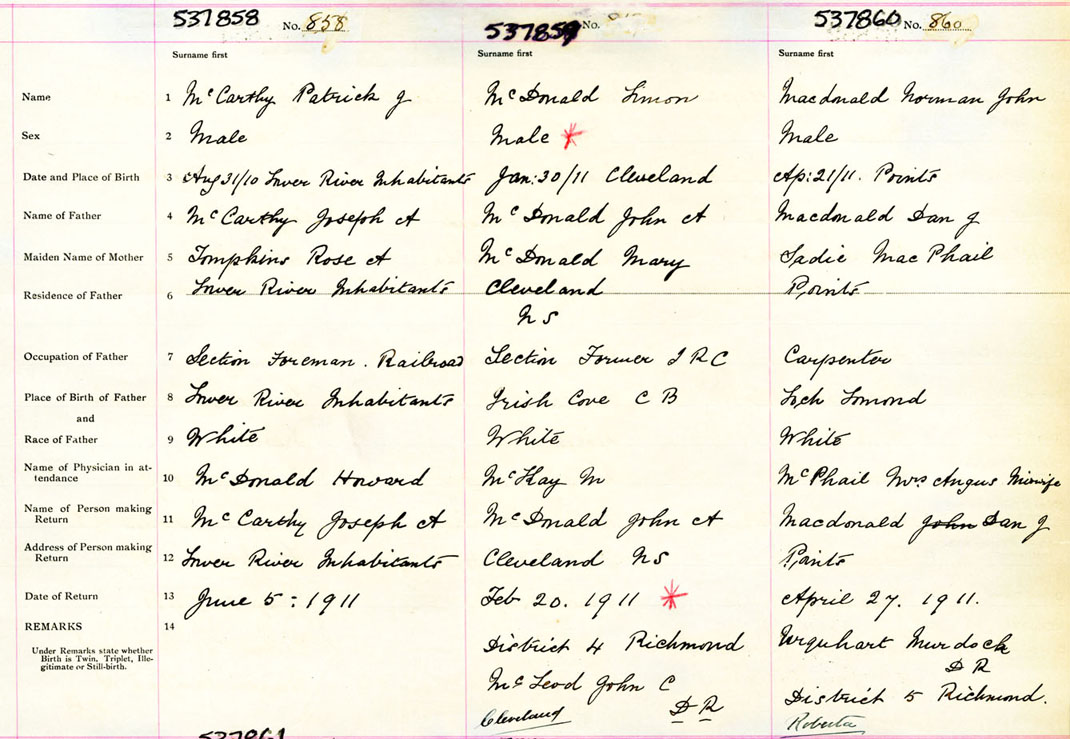 537858 No. 858
537859 No.
537860 No. 860
Surname first Surname first Surname first
Name 1 McCarthy Patrick J McDonald Simon Macdonald Norman John
Sex 2 Male Male * Male
Date and Place of Birth 3 Aug 31/10 Lower River Inhabitants Jan: 30/11 Cleveland Ap: 21/11. Points
Name of Father 4 McCarthy Joseph A McDonald John A Macdonald Dan J
Maiden Name of Mother 5 Tompkins Rose A McDonald Mary Sadie MacPhail
Residence of Father 6 Lower River Inhabitants Cleveland Points
N S
Occupation of Father 7 Section Foreman. Railroad Section Former I R C Carpenter
Place of Birth of Father 8 Lower River Inhabitants Irish Cove C B Loch Lomond
and
Race of Father 9 White White White
Name of Physician in at-
tendance 10 McDonald Howard McKay M McPhail Mrs Angus Midwife
Name of Person making
Return 11 McCarthy Joseph A McDonald John A Macdonald John Dan J
Address of Person making
Return 12 Lower River Inhabitants Cleveland NS Points
Date of Return 13 June 5: 1911 Feb 20. 1911 * April 27. 1911.
REMARKS 14
Under Remarks state whether
Birth is Twin, Triplet, Ille-
gitimate or Still-birth.
District 4 Richmond
McLeod John C
D R
Cleveland
Urquhart Murdock
D R
District 5 Richmond.
Roberta
537861